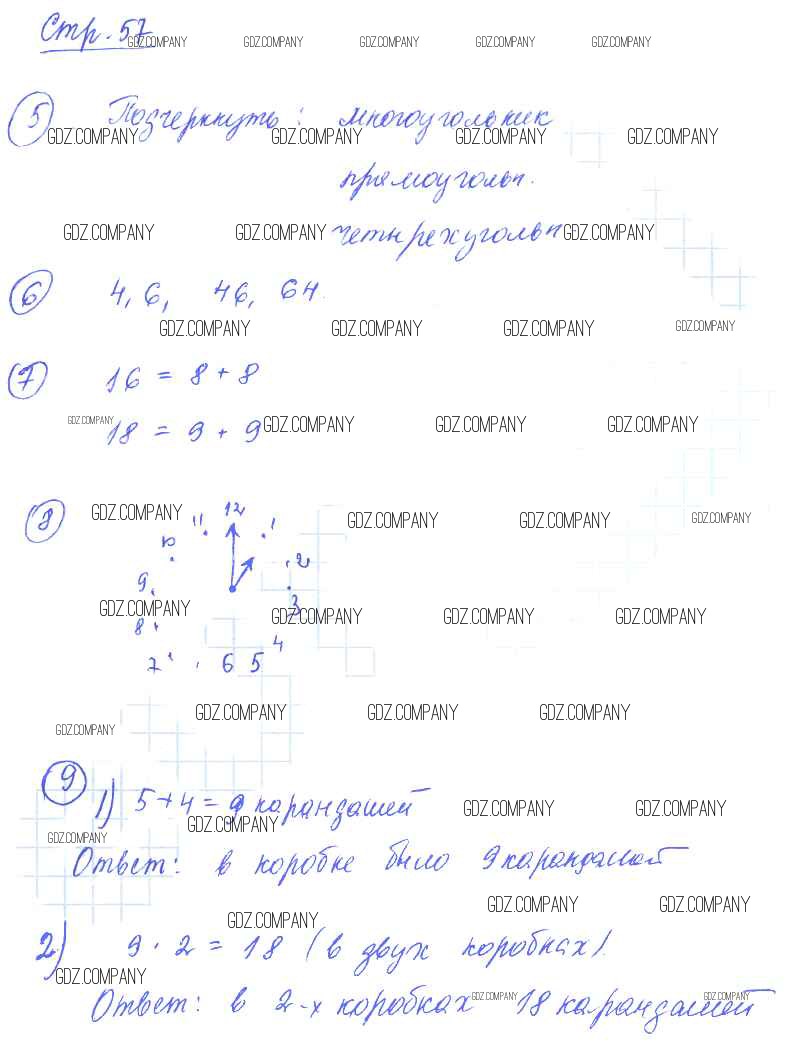 Стр. 57
GDZ.COMPANY GDZ.COMPANY GDZ.COMPANY GDZ.COMPANY GDZ.COMPANY
5 Подчеркнуть: многоугольник
GDZ.COMPANY GDZ.COMPANY GDZ.COMPANY GDZ.COMPANY
прямоугольн.
GDZ.COMPANY GDZ.COMPANY четырехугольн GDZ.COMPANY
6 4, 6, 46, 64.
GDZ.COMPANY GDZ.COMPANY GDZ.COMPANY GDZ.COMPANY
7 16 = 8 + 8
GDZ.COMPANY GDZ.COMPANY GDZ.COMPANY GDZ.COMPANY
18 = 9 + 9
8 GDZ.COMPANY 11 12 1 GDZ.COMPANY GDZ.COMPANY GDZ.COMPANY
10 2
9 3
GDZ.COMPANY GDZ.COMPANY GDZ.COMPANY GDZ.COMPANY
8 4
7 6 5
GDZ.COMPANY GDZ.COMPANY GDZ.COMPANY GDZ.COMPANY
9
1) 5+4=9 карандашей GDZ.COMPANY GDZ.COMPANY
GDZ.COMPANY GDZ.COMPANY
Ответ: в коробке было 9 карандашей
GDZ.COMPANY GDZ.COMPANY GDZ.COMPANY
2) 9 · 2 = 18 (в двух коробках).
GDZ.COMPANY GDZ.COMPANY GDZ.COMPANY
Ответ: в 2-х коробках 18 карандашей